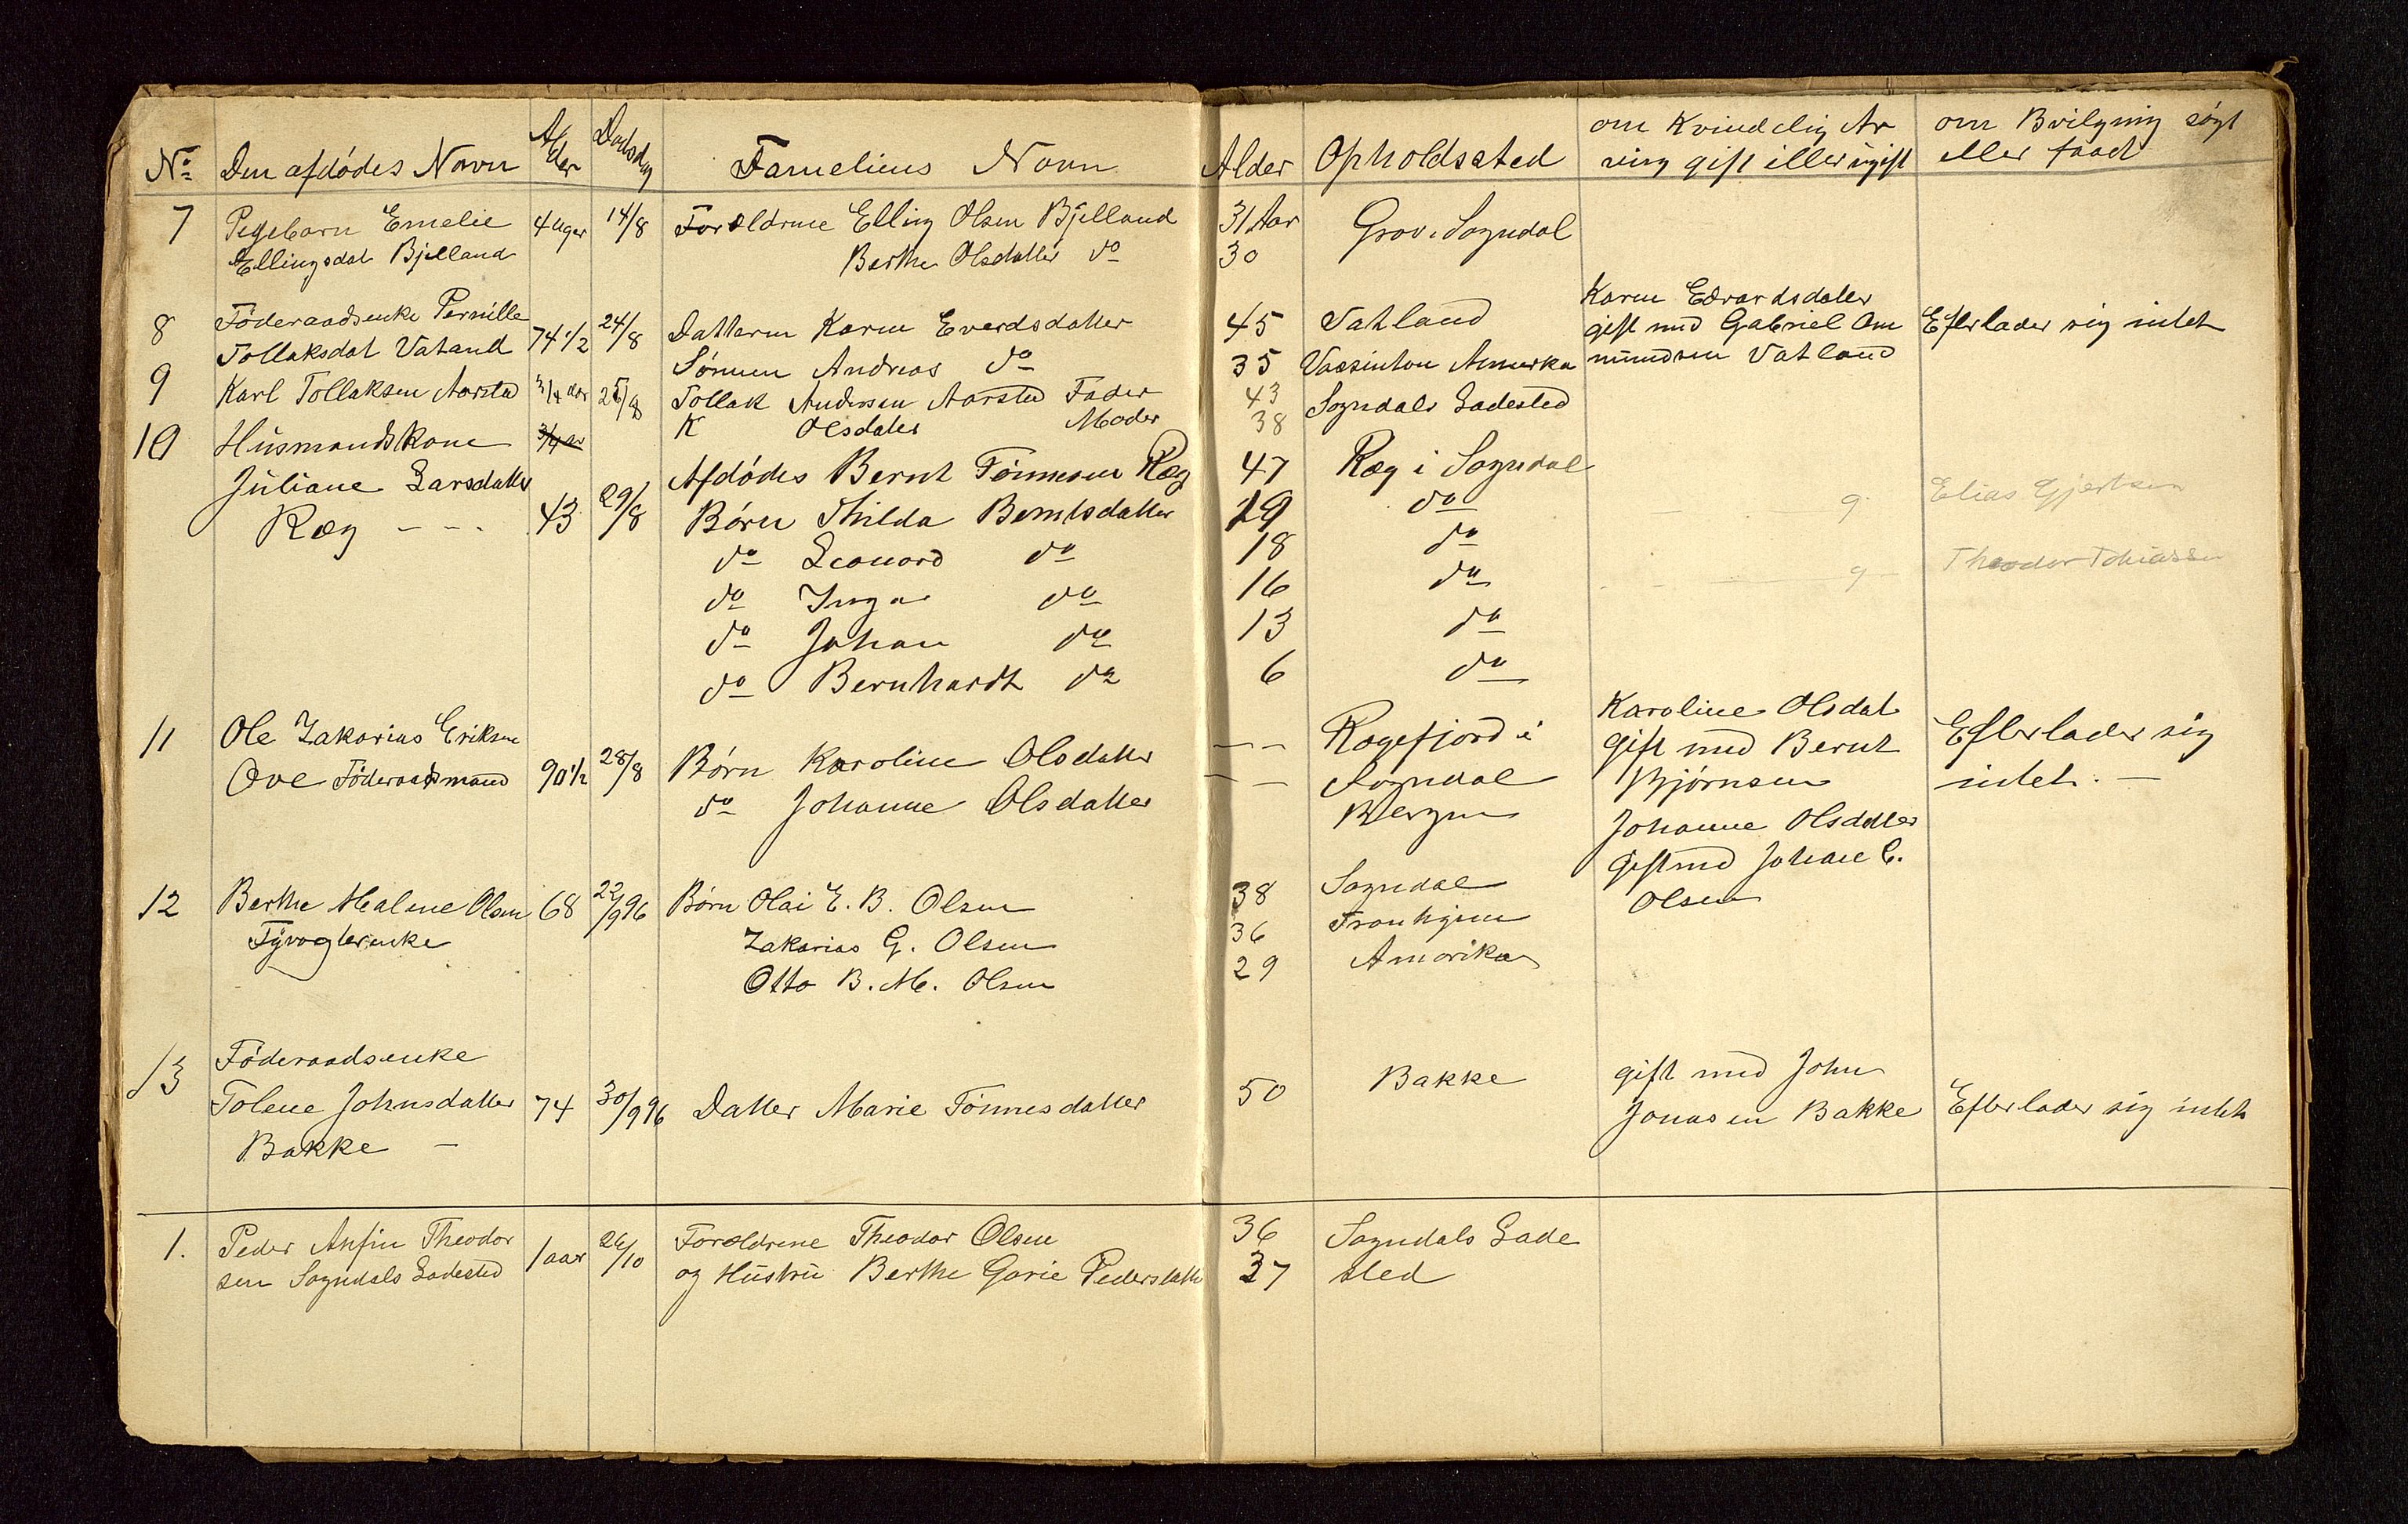 No Den afdødes Navn Alder Dødsdag Fameliens Navn Alder Opholdssted om Kvindelig Ar om Bvilgning søgt
ring gift eller ugift eller faaet
7 Pigebarn Emelie 4 Uger 14/8 Forældrene Elling Olsen Bjelland 31 Aar Grov i Sogndal
Ellingsdat Bjelland Berthe Olsdatter do 30
Karen Edvardsdatter
8 Føderaadsenke Pernille 74 1/2 24/8 Datteren Karen Everdsdatter 45 Vatland gift med Gabriel Am Efterlader sig intet
Tollaksdat Vatland Sønnen Andreas do 35 Vassinton Amerka mundsen Vatland
9 Karl Tollaksen Aarstad 3/4 aar 25/8 Tollak Andersen Aarstad Fader 43 Sogndals Ladested
K Olsdater Moder 38
10 Husmandskone 3/4 aar
Juliane Larsdatter Afdødes Bernt Tønnesen Ræg 47 Ræg i Sogndal
Ræg - - - 43 29/8 Børn Thilda Berntsdatter 19 do g Elias Gjertsen
do Leonard do 18 do
do Inga do 16 do g Theodor Tobiassen
do Johan do 13 do
do Bernhardt do 6 do
11 Ole Zakarias Eriksen - - Rægefjord i Karoline Olsdat
Ove Føderaadsmand 90 1/2 28/8 Børn Karoline Olsdatter - Sogndal gift med Bernt Efterlader sig
do Johanne Olsdatter Bergen Bjørnsen intet. -
Johanne Olsdatter
gift med Johan C.
12 Berthe Malene Olsen 68 22/9 96 Børn Olai E. B. Olsen 38 Sogndal Olsen
Fyrvogterenke Zakarias G. Olsen 36 Tronhjem
Otto B. M. Olsen 29 Amerika
13 Føderaadsenke
Tolene Johnsdatter 74 30/9 96 Datter Marie Tønnesdatter 50 Bakke gift med John
Bakke - Jonasen Bakke Efterlader sig intet
1. Peder Anfin Theodor 1 aar 26/10 Forældrene Theodor Olsen 36 Sogndals Lade
sen Sogndals Ladested og Hustru Berthe Garie Pedersdatter 37 sted